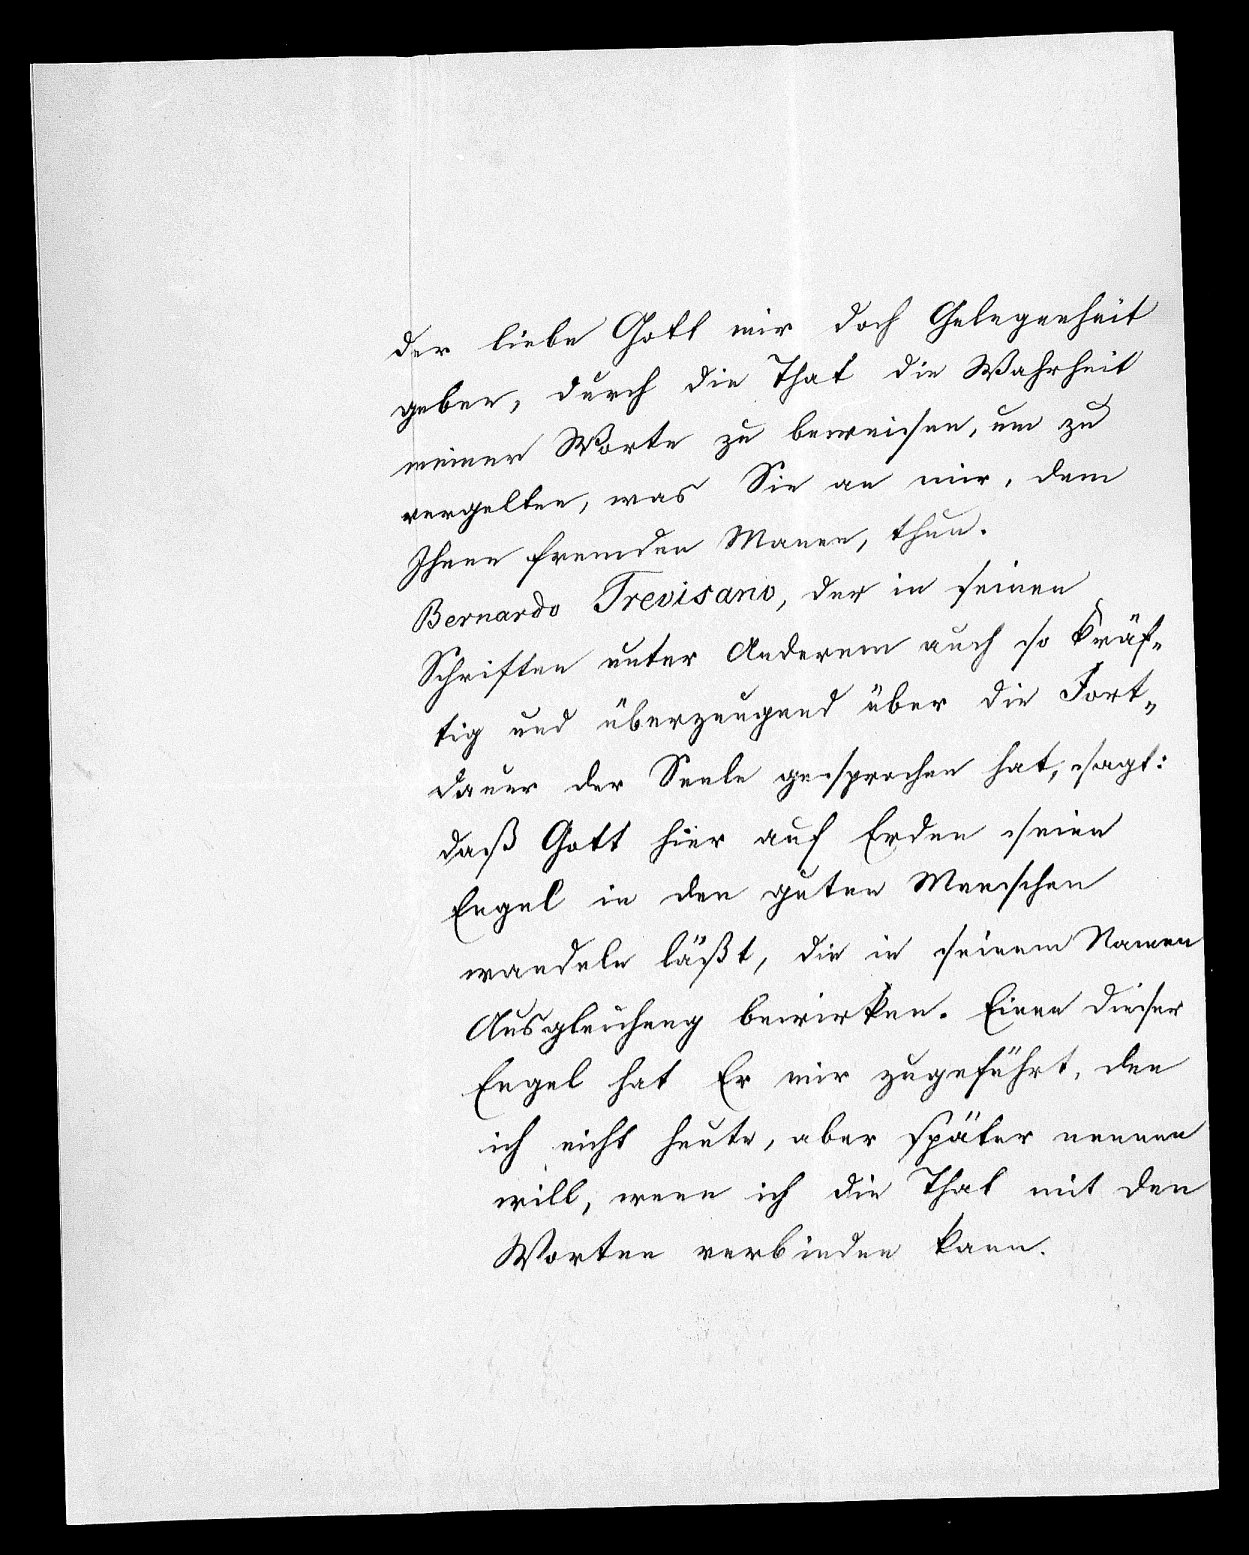 der liebe Gott mir doch Gelegenheit
geben, durch die That die Wahrheit
meiner Worte zu beweisen, um zu
vergelten, was Sie an mir, dem
Ihnen fremden Manne, thun.
Bernardo Trevisano, der in seinen
Schriften unter Anderem auch so kräf-
tig und überzeugend über die Fort-
dauer der Seele gesprochen hat, sagt:
daß Gott hier auf Erden seine
Engel in den guten Menschen
wandeln läßt, die in seinem Namen
Ausgleichung bewirken. Einen dieser
Engel hat Er mir zugeführt, den
ich nicht heute, aber später nennen
will, wenn ich die That mit den
Worten verbinden kann.